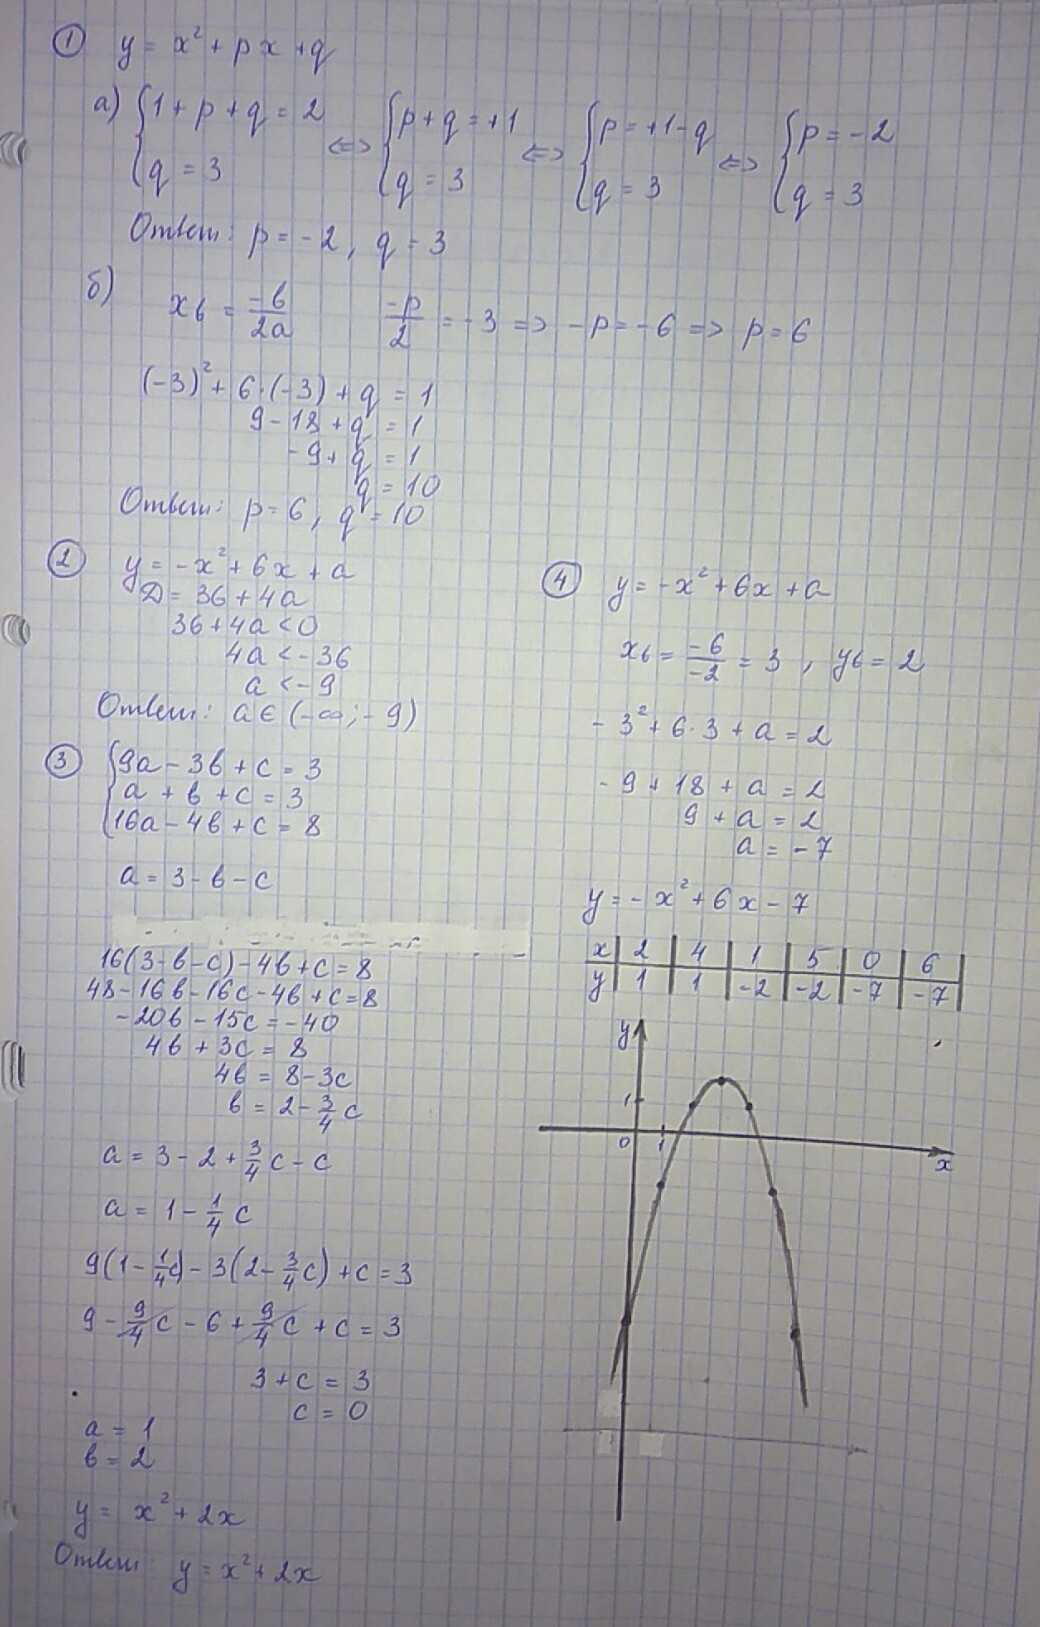 ① y = x² + px + q
а) {1 + p + q = 2 <=> {p + q = +1 <=> {p = +1 - q <=> {p = -2
{q = 3 {q = 3 {q = 3 {q = 3
Ответ: p = -2, q = 3
б) xв = -в/2a -p/2 = -3 => -p = -6 => p = 6
(-3)² + 6·(-3) + q = 1
9 - 18 + q = 1
-9 + q = 1
q = 10
Ответ: p = 6, q = 10
② y = -x² + 6x + a
D = 36 + 4a
36 + 4a < 0
4a < -36
a < -9
Ответ: a ∈ (-∞; -9)
③ {9a - 3в + c = 3
a + в + c = 3
16a - 4в + c = 8
a = 3 - в - c
16(3 - в - c) - 4в + c = 8
48 - 16в - 16c - 4в + c = 8
-20в - 15c = -40
4в + 3c = 8
4в = 8 - 3c
в = 2 - 3/4 c
a = 3 - 2 + 3/4 c - c
a = 1 - 1/4 c
9(1 - 1/4 c) - 3(2 - 3/4 c) + c = 3
9 - 9/4 c - 6 + 9/4 c + c = 3
3 + c = 3
c = 0
a = 1
в = 2
y = x² + 2x
Ответ: y = x² + 2x
④ y = -x² + 6x + a
xв = -6/-2 = 3, yв = 2
-3² + 6·3 + a = 2
-9 + 18 + a = 2
9 + a = 2
a = -7
y = -x² + 6x - 7
x | 2 | 4 | 1 | 5 | 0 | 6
y | 1 | 1 | -2 | -2 | -7 | -7
y
1
0 1 x